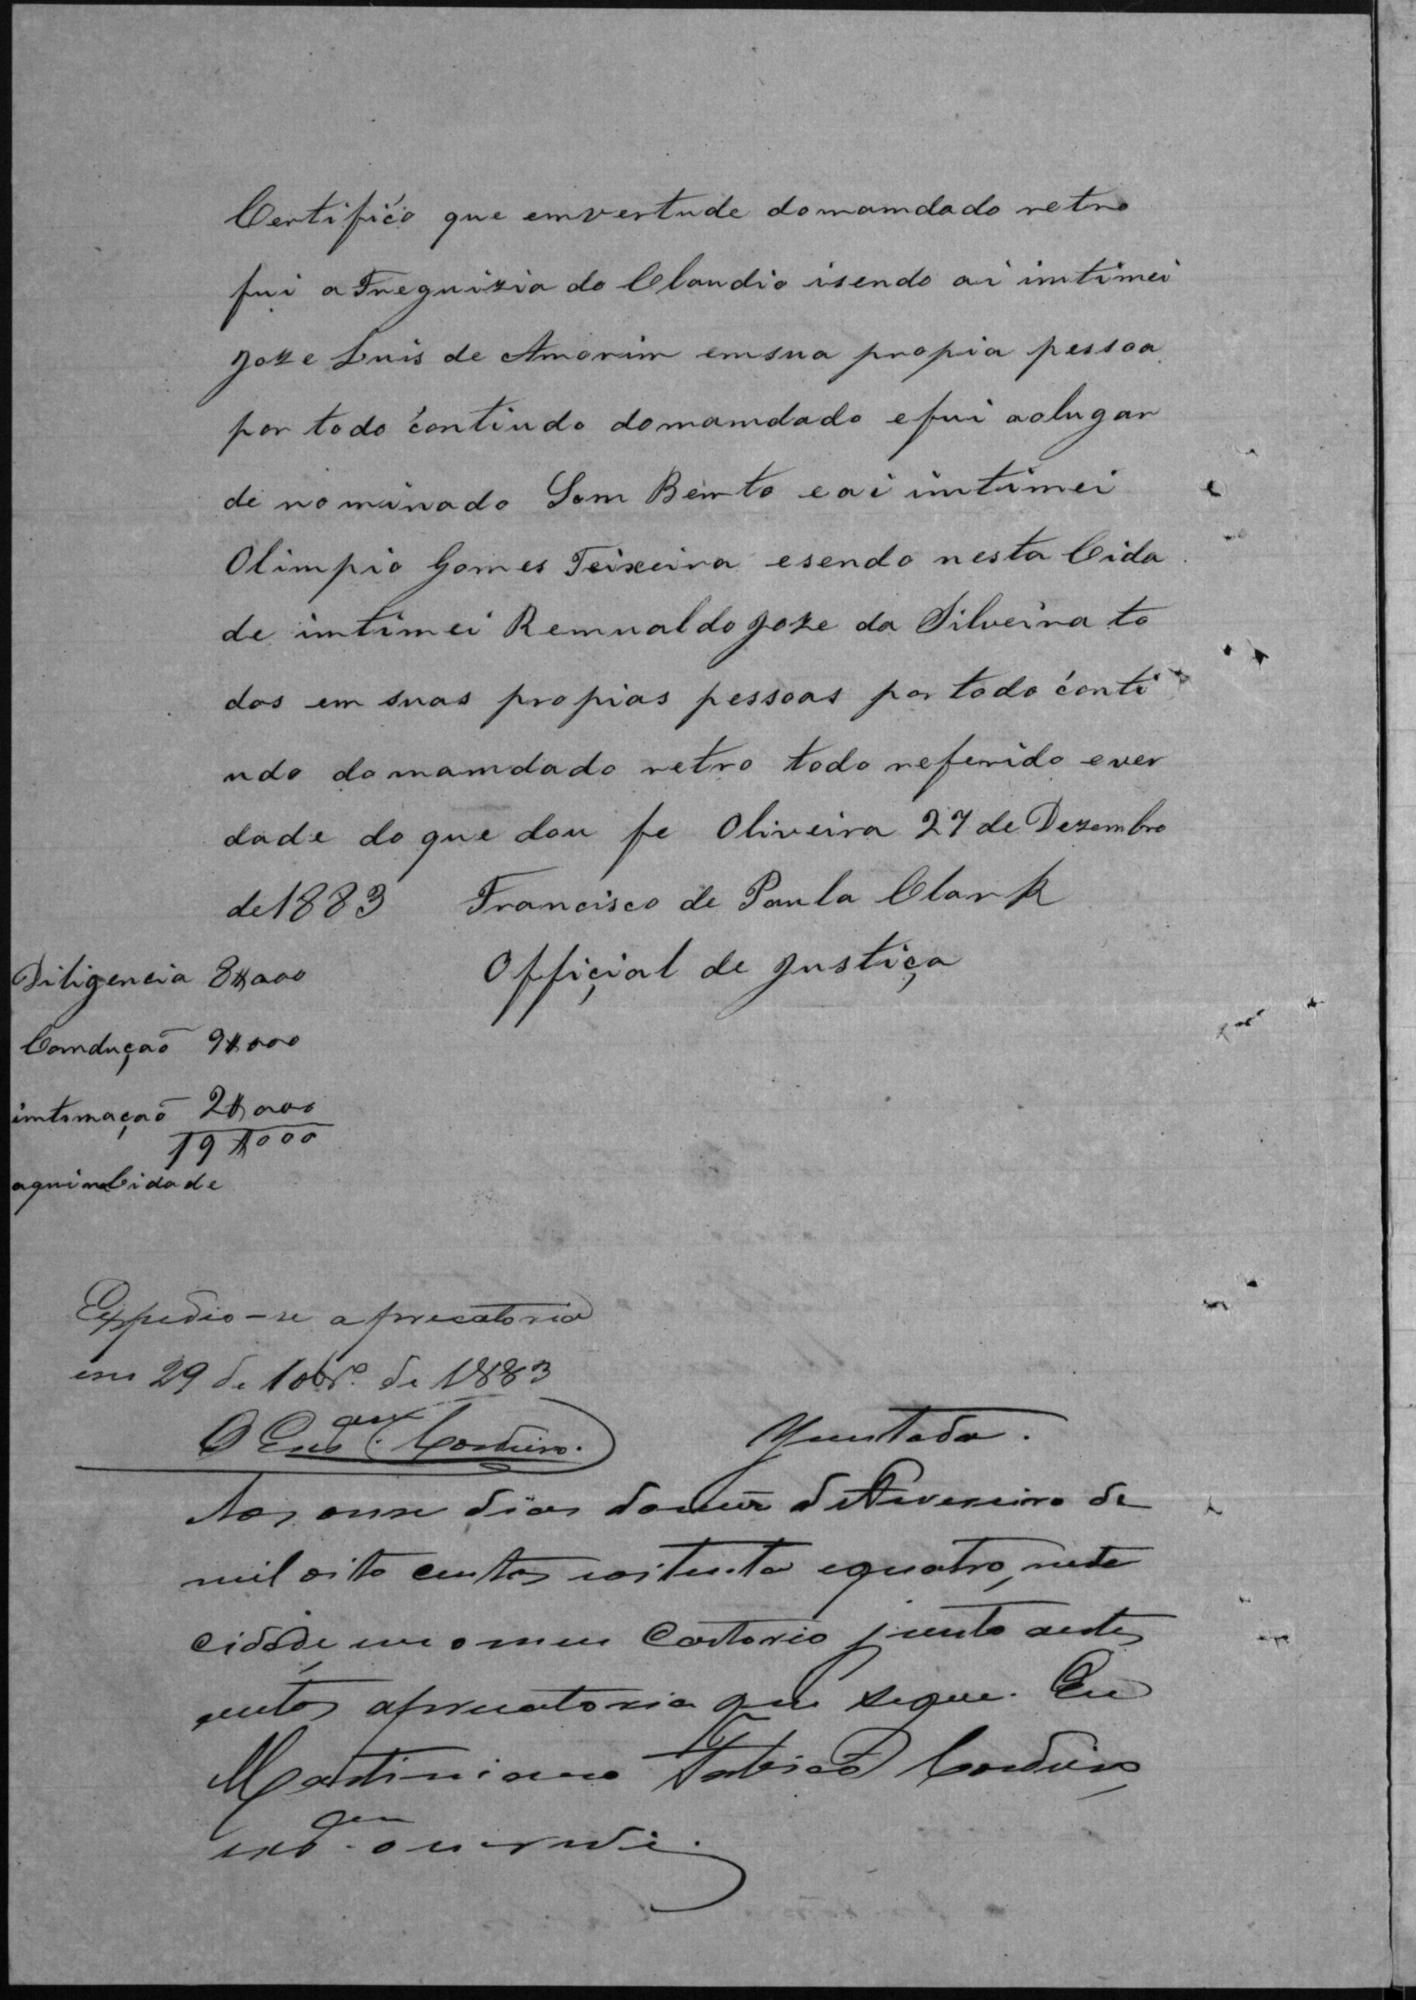 Certifico que emvertude domamdado retro
fui a Freguizia do Claudio isendo ai imtimei
Joze Luis de Amorim emsua propia pessoa
por todo contiudo domamdado efui aolugar
de nominado Som Bemto eai imtimei
Olimpio Gomes Teixeira esendo nesta Cida
de imtimei Remualdo Joze da Silveira to
dos em suas propias pessoas por todo conti
udo domamdado retro todo referido ever
dade do que dou fe Oliveira 27 de Dezembro
de 1883 Francisco de Paula Clark
Official de justiça
Diligencia 8$000
Comdução 9$000
imtimação 2$000
19$000
aquinaCidade
Expedio-se a precatoria
em 29 de 10br.º de 1883
O Escam Cordeiro.
Juntada.
Aos onse dias domez de Fevereiro de
mil oito centos eoitenta equatro, nesta
cidade em o meu Cartorio junto aestes
autos aprecatoria que segue. Eu
Martiniano Fabião Cordeiro
escam o escrevi.